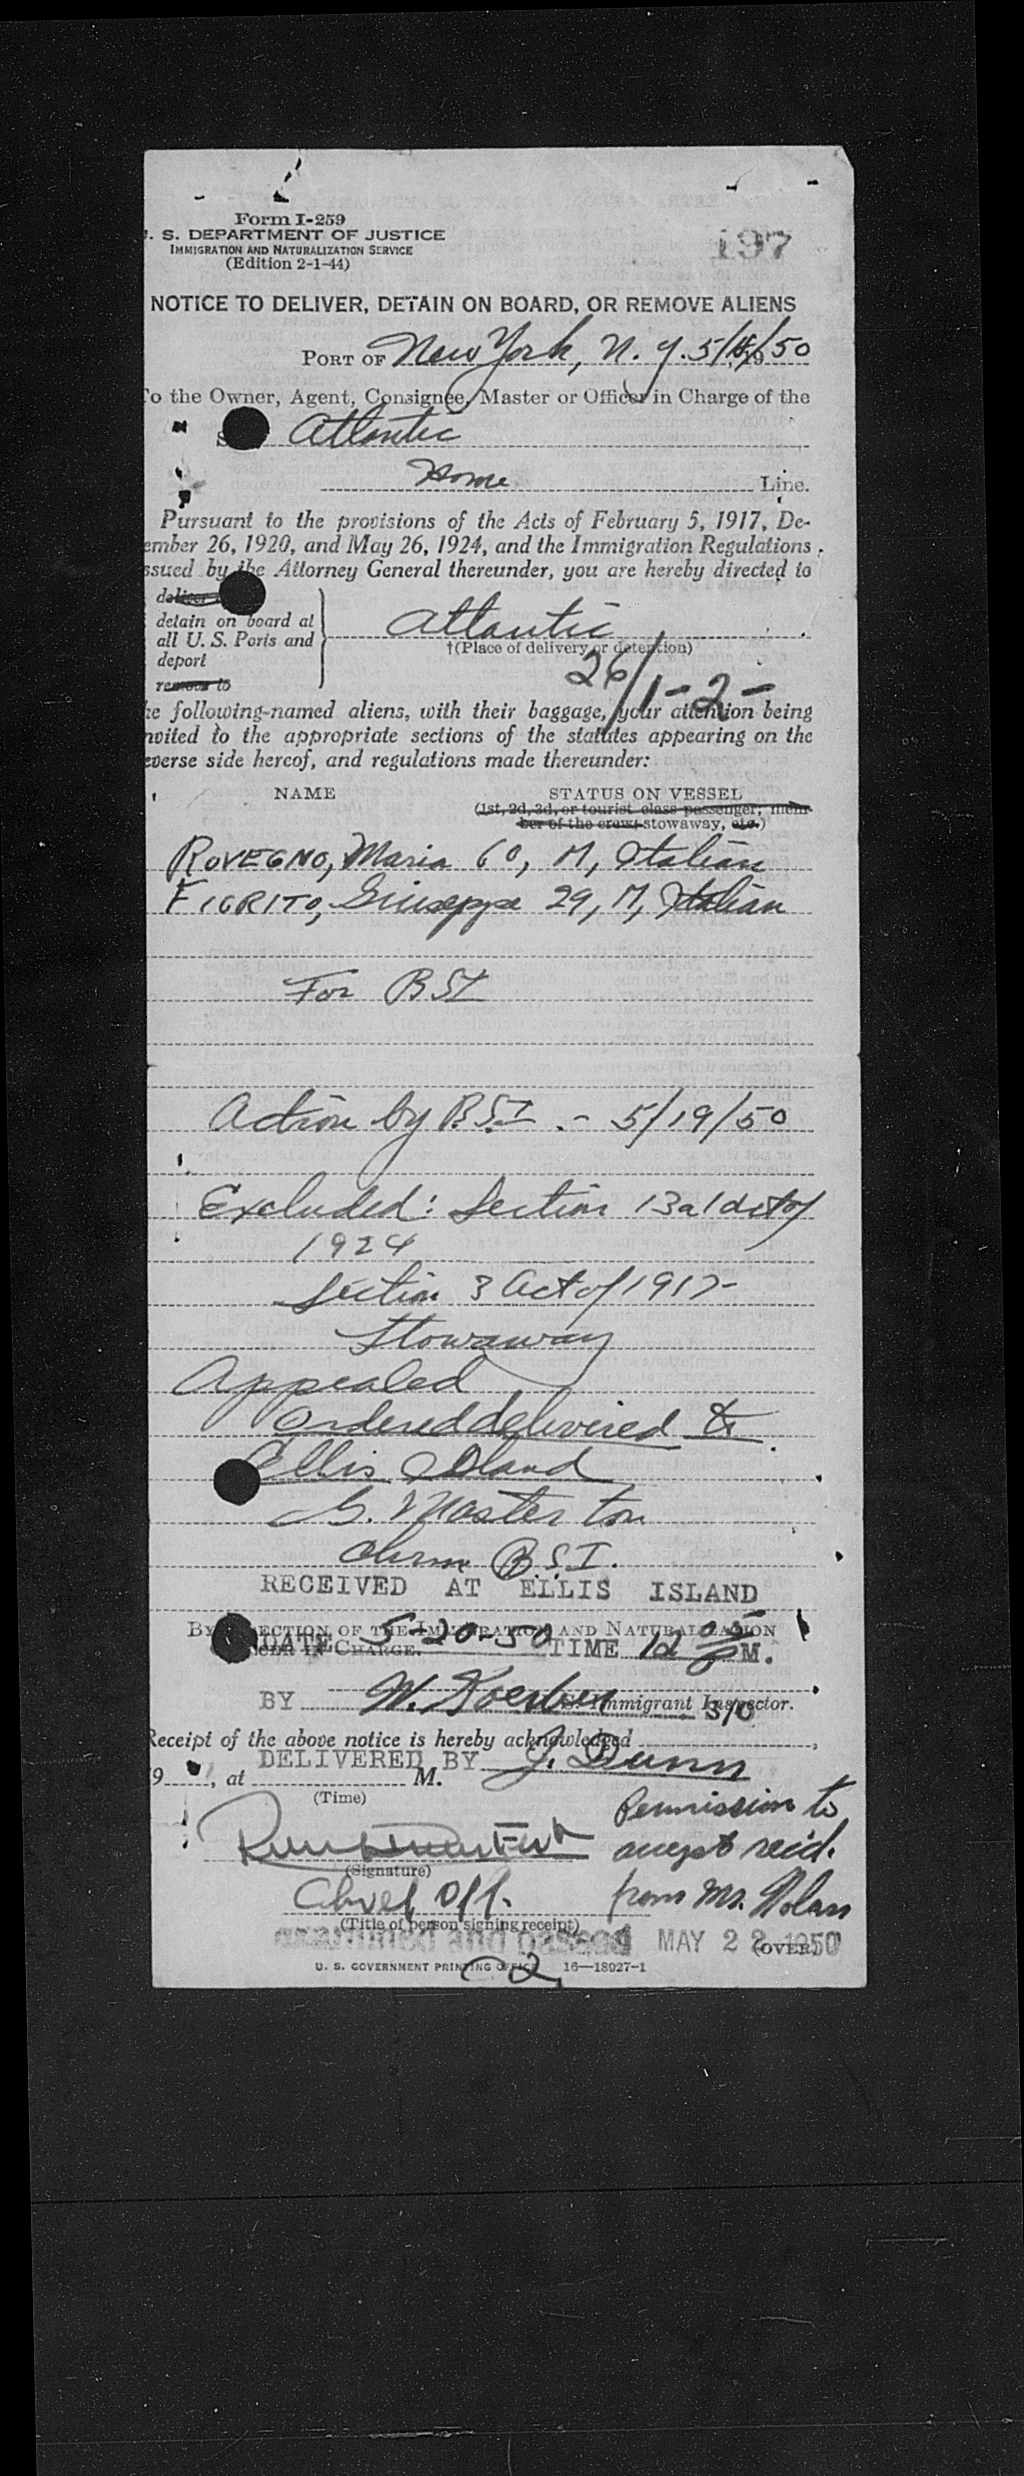 197
Form I-259
. S. DEPARTMENT OF JUSTICE
IMMIGRATION AND NATURALIZATION SERVICE
(Edition 2-1-44)
NOTICE TO DELIVER, DETAIN ON BOARD, OR REMOVE ALIENS
PORT OF New York, N. Y. 5/ /50
To the Owner, Agent, Consignee, Master or Officer in Charge of the
Atlantic
Home Line.
Pursuant to the provisions of the Acts of February 5, 1917, De-
ember 26, 1920, and May 26, 1924, and the Immigration Regulations
ssued by the Attorney General thereunder, you are hereby directed to
deliver
detain on board at
all U. S. Ports and
deport
remove to
Atlantic
†(Place of delivery or detention)
26/1-2-
he following-named aliens, with their baggage, your attention being
nvited to the appropriate sections of the statutes appearing on the
everse side hereof, and regulations made thereunder:
NAME STATUS ON VESSEL
(1st, 2d, 3d, or tourist class passenger, mem-
ber of the crew, stowaway, etc.)
ROVEGNO, Maria 60, M, Italian
FIORITO, Giuseppe 29, M, Italian
For BSI
Action by B.S.I. - 5/19/50
Excluded: Section 13a1 Act of
1924
Section 3 Act of 1917-
Stowaway
Appealed
Ordered delivered to
Ellis Island
G. Masterton
Chrm B.S.I.
RECEIVED AT ELLIS ISLAND
BY DIRECTION OF THE IMMIGRATION AND NATURALIZATION
OFFICER IN CHARGE.
DATE 5-20-50 TIME 12 05 P M.
BY W. Koerber
Immigrant Inspector.
S/O
Receipt of the above notice is hereby acknowledged
DELIVERED BY J. Dunn
9 , at M.
(Time)
Permission to
accept recd.
from Mr. Nolan
(Signature)
Chief Off.
(Title of person signing receipt)
examined and passed MAY 22 1950
(OVER)
U. S. GOVERNMENT PRINTING OFFICE 16—18927-1
2